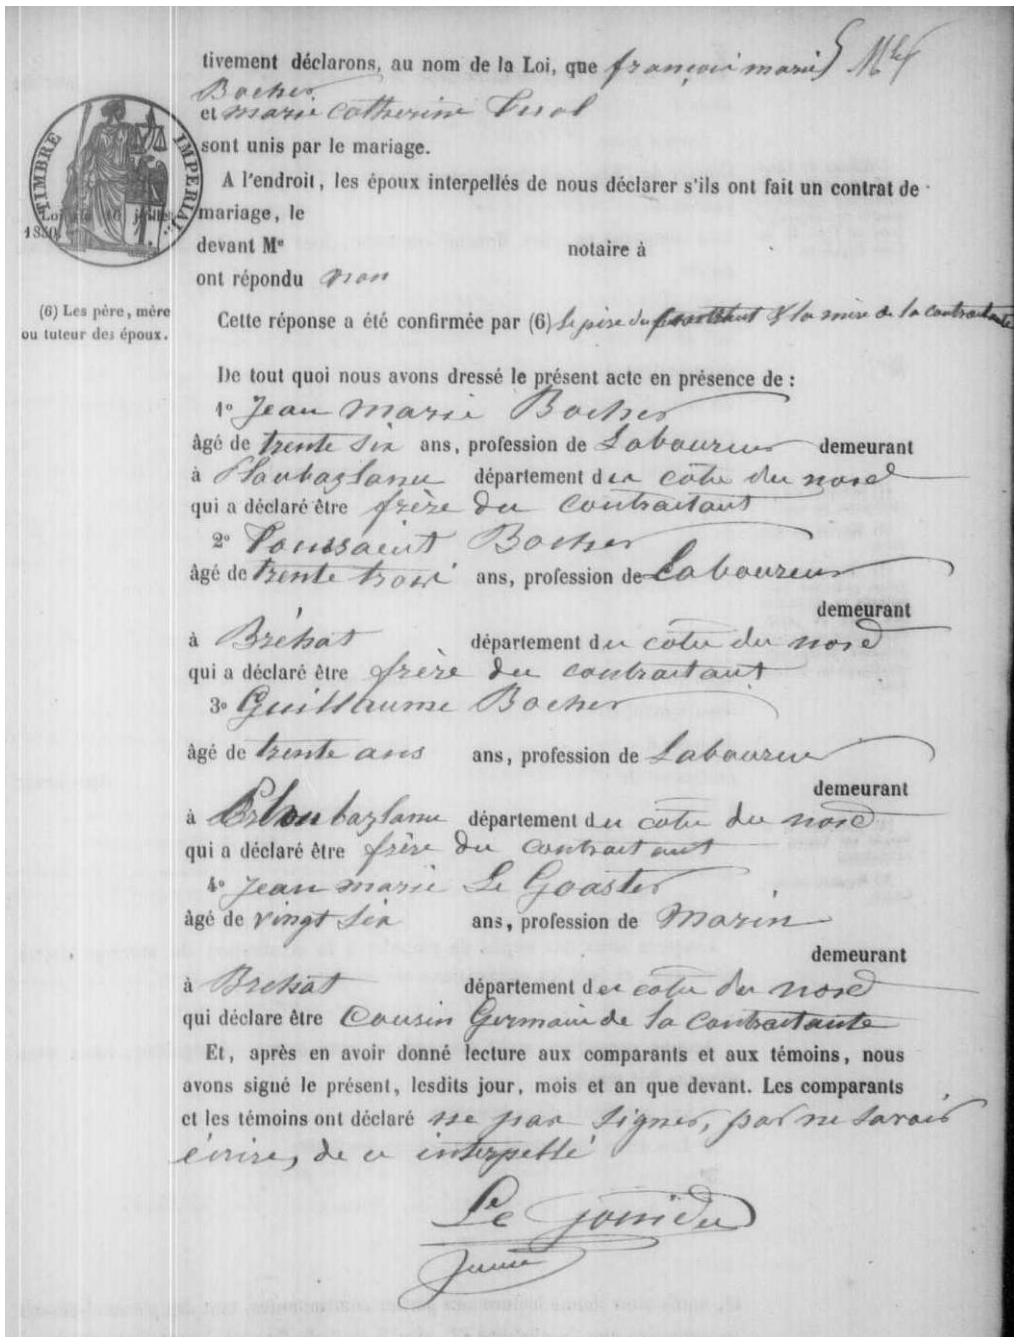 tivement déclarons, au nom de la Loi, que françois marie
Bocher
et marie catherine
sont unis par le mariage.
A l'endroit, les époux interpellés de nous déclarer s'ils ont fait un contrat de
mariage, le
devant Me notaire à
ont répondu non
(6) Les père, mère
ou tuteur des époux.
Cette réponse a été confirmée par (6) le père du & la mère de la contractante
TIMBRE IMPERIAL
Loi du 10 juillet
1850.
De tout quoi nous avons dressé le présent acte en présence de :
1o Jean marie Bocher
âgé de trente six ans, profession de Laboureur demeurant
à Ploubazlanec département des côtes du nord
qui a déclaré être frère du contractant
2o Toussaint Bocher
âgé de trente trois ans, profession de Laboureur
demeurant
à Bréhat département des côtes du nord
qui a déclaré être frère du contractant
3o Guillaume Bocher
âgé de trente ans ans, profession de Laboureur
demeurant
à Ploubazlanec département des côtes du nord
qui a déclaré être frère du contractant
4o Jean marie Le Goaster
âgé de vingt six ans, profession de Marin
demeurant
à Brehat département des côtes du nord
qui déclare être Cousin Germain de la contractante
Et, après en avoir donné lecture aux comparants et aux témoins, nous
avons signé le présent, lesdits jour, mois et an que devant. Les comparants
et les témoins ont déclaré ne pas signer, par ne savoir
écrire, de ce interpellé
Le